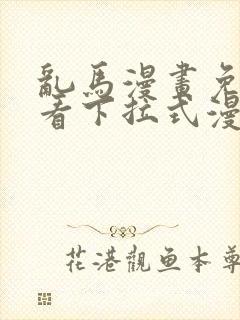 亂馬漫畫免
看下拉式漫
花港觀鱼本尊